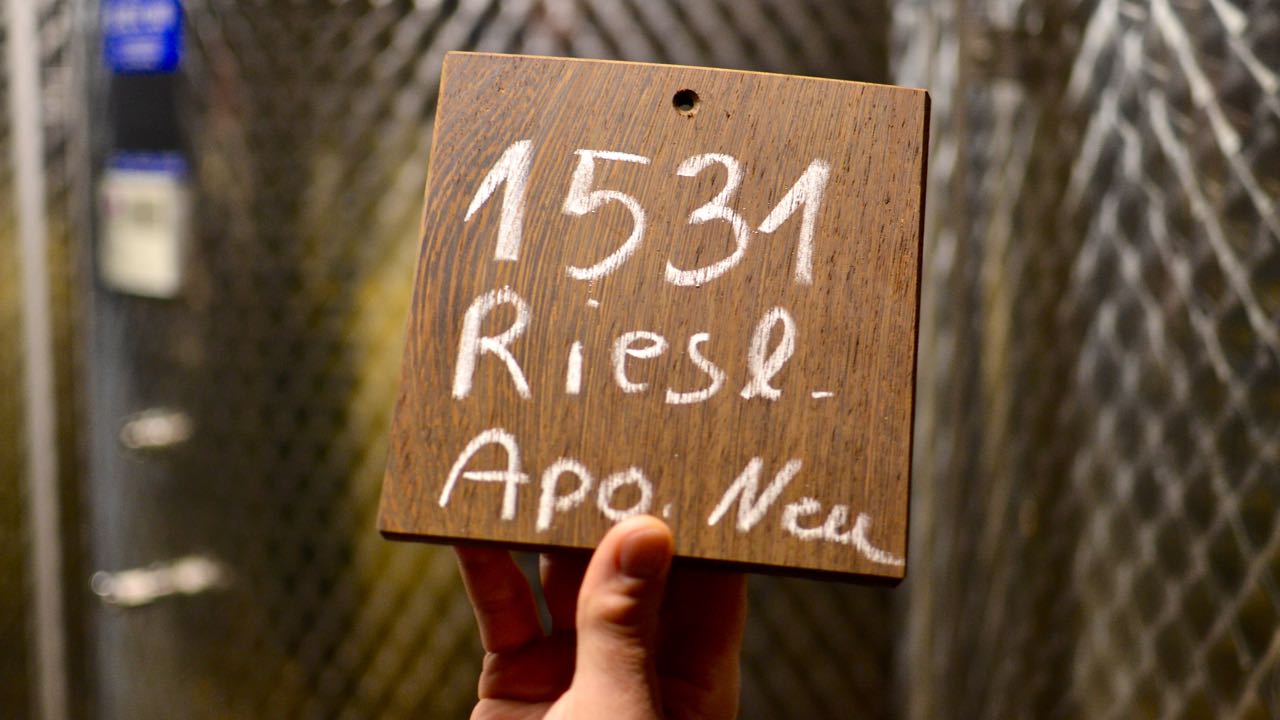 1531
Riesl-
Apo. Neu